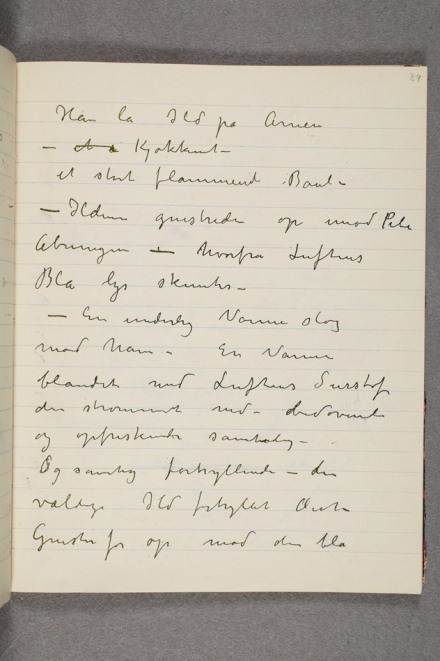 24
Han la Ild på Arnen
– Kjøkkent –
et stort flammend Baal –
– Ildens gnistrede op imod Pibe
Åbningen – hvorfra Luftens
Blå lys skimtes –
– En underlig Varme slog
mod ham – En Varme
blandet med Luftens Surstof
der strømmet ned – bedøvende
og opfriskende samtidig –
Og samtidig fortryllende – den
vældige Ild
Gnister før op mod den blå